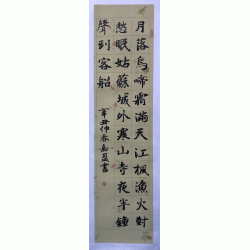 月落烏啼霜滿天江楓漁火對
愁眠姑蘇城外寒山寺夜半鐘
聲到客船
辛丑仲春嘉显書